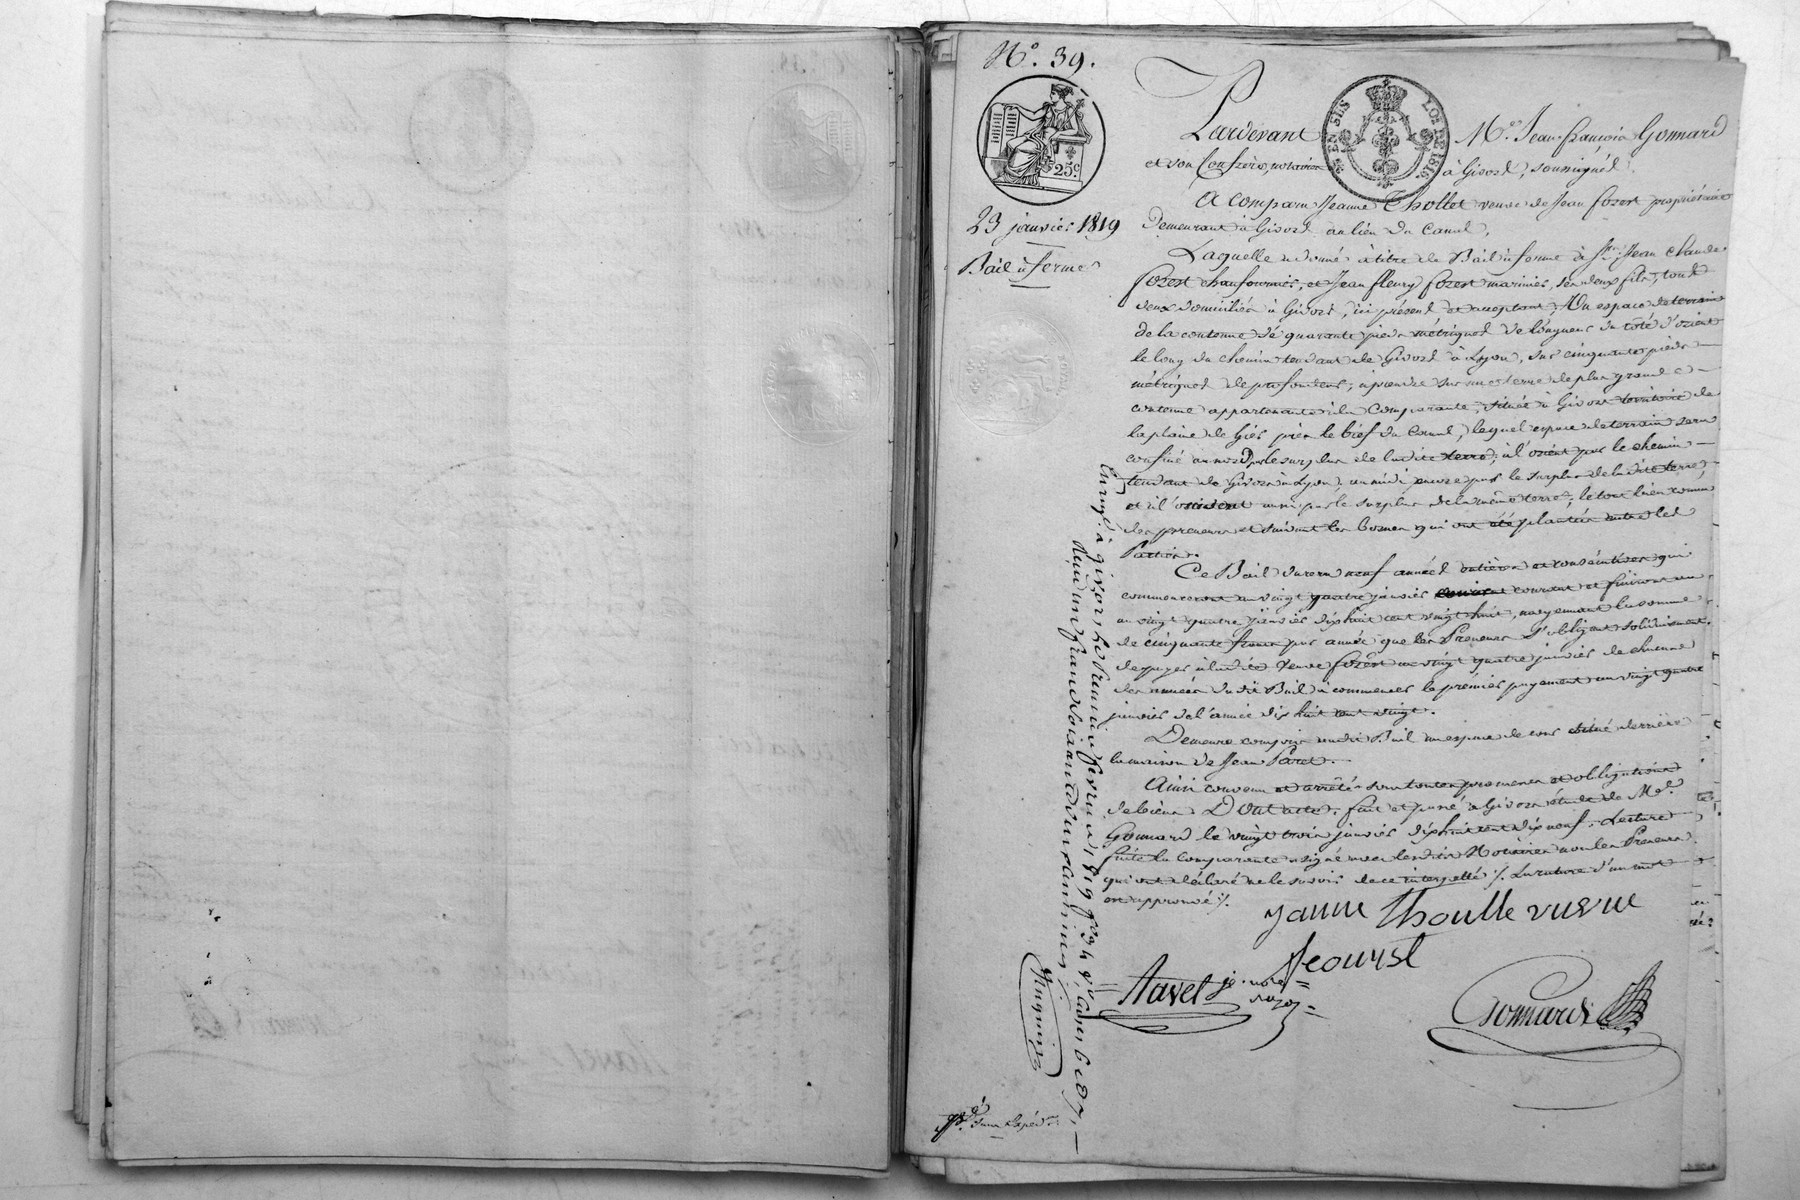 N.° 39.
25.c
EN SUS
LOI DE 1816.
23 janvier 1819
Bail à ferme
Pardevant M.e Jean françois Gonnard
et son Confrère, notaires à Givors, soussignés.
A comparu Jeanne Thollet veuve de Jean forest propriétaire
demeurant à Givors au lieu du Canal,
Laquelle a donné à titre de Bail à ferme à Srs. Jean Claude
forest chaufournier, et Jean fleury forest marinier, ses deux fils, tous
deux domiciliés à Givors, ici présens et acceptant, Un espace de terrain
de la contenue de quarante pieds métriques de longueur du côté d'orient
le long du chemin tendant de Givors à Lyon, sur cinquante pieds
métriques de profondeur, à prendre sur une terre de plus grande
contenue appartenante à la Comparante, située à Givors territoire de
la plaine de Giés près le bief du Canal, lequel espace de terrain sera
confiné au nord par le surplus de ladite terre, à l'orient par le chemin
tendant de Givors à Lyon, au midi encore par le surplus de ladite terre,
et à l'occident aussi par le surplus de la même terre, le tout bien connu
des preneurs et suivant les bornes qui ont été plantées entre les
Parties.
Ce Bail durera neuf années entières et consécutives qui
commenceront au vingt quatre janvier courant et finiront au
au vingt quatre janvier dix huit cent vingt huit, moyennant la somme
de cinquante francs par année que les Preneurs s'obligent solidairement
de payer à ladite Veuve forest au vingt quatre janvier de chacune
des années dudit Bail à commencer le premier payement au vingt quatre
janvier de l'année dix huit cent vingt.
Demeure compris audit Bail un espace de cour situé derrière
la maison de Jean Paret.
Ainsi convenu et arrêté sous toutes promesses et obligations
de biens. Dont acte. fait et passé à Givors étude de Me.
Gonnard le vingt trois janvier dix huit cent dix neuf. Lecture
faite la comparante a signé avec lesdits Notaires non les Preneurs
qui ont déclaré ne le savoir de ce interpellé ./. La rature d'un mot
est approuvée ./.
janne thoulle veuve
feourest
Favet
Gonnard
Enreg.é à givors le premier fevrier 1819 f.o 94
Reçu un franc soixante